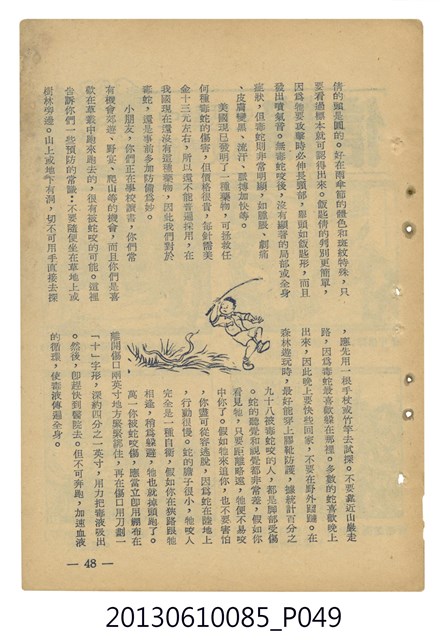 倩的頭是圓的。好在雨傘節的體色和斑紋特殊，只
要看過標本就可認得出來。飯匙倩的判別更簡單，
因爲牠要攻擊時必伸長頸部，擧頭如飯匙形，而且
發出噴氣音。無毒蛇咬後，沒有顯著的局部或全身
症狀，但毒蛇則非常明顯，如腫脹、劇痛
、皮膚變黑、流汗、脈搏加快等。
美國現已發明了一種藥物，可拯救任
何種毒蛇的傷害，但價格很貴，每針需美
金十三元左右，所以還不能普遍採用，在
我國現在還沒有這種藥物，因此我們對於
毒蛇，還是事前多加防備爲妙。
小朋友，你們正在學校讀書，你們常
有機會郊遊、野宴、爬山等的機會，而且你們是喜
歡在草叢中跑來跑去的，很有被蛇咬的可能。這裡
告訴你們一些預防的常識：不要隨便坐在草地上或
樹林旁邊。山上或地下有洞，切不可用手直接去探
，應先用一根手杖或竹竿去試探。不要靠近山巖走
路，因爲毒蛇最喜歡躱在那裡。多數的蛇喜歡晚上
出來，因此晚上要快些回家，不要在野外蹓躂。在
森林遊玩時，最好能穿上膠靴防護，據統計百分之
九十八被毒蛇咬的人，都是脚部受傷
。蛇的聽覺和視覺都非常差，假如你
看見牠，只要距離略遠，牠便不易咬
中你了。假如牠來追你，也不要害怕
，你儘可從容逃脫，因爲蛇在陸地上
，行動很慢。蛇的膽子很小，牠咬人
完全是一種自衞，假如你在狹路跟牠
相逢，稍爲躱避，牠也就掉頭跑了。
萬一你被蛇咬傷，應當立即用綳布在
離開傷口兩英寸地方緊緊綁住，再在傷口用刀劃一
「十」字形，深約四分之一英寸，用力把毒液吸出
。然後，卽趕快到醫院去。但不可奔跑，加速血液
的循環，使毒液傳遍全身。
— 48 —
20130610085_P049